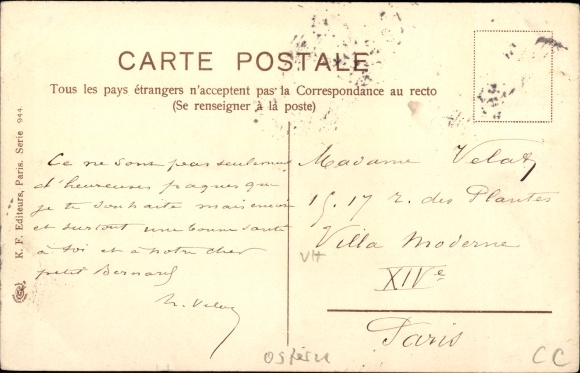 CARTE POSTALE
Tous les pays étrangers n'acceptent pas la Correspondance au recto
(Se renseigner à la poste)
K. F. Editeurs, Paris. Serie 944.
Ce ne sont pas seulement
d'heureuses paques que
je te souhaite mais encore
et surtout une bonne santé
à toi et à notre cher
petit Bernard
Madame Velay
15. 17 r. des Plantes
Villa Moderne
XIVe
Paris
VH
CC